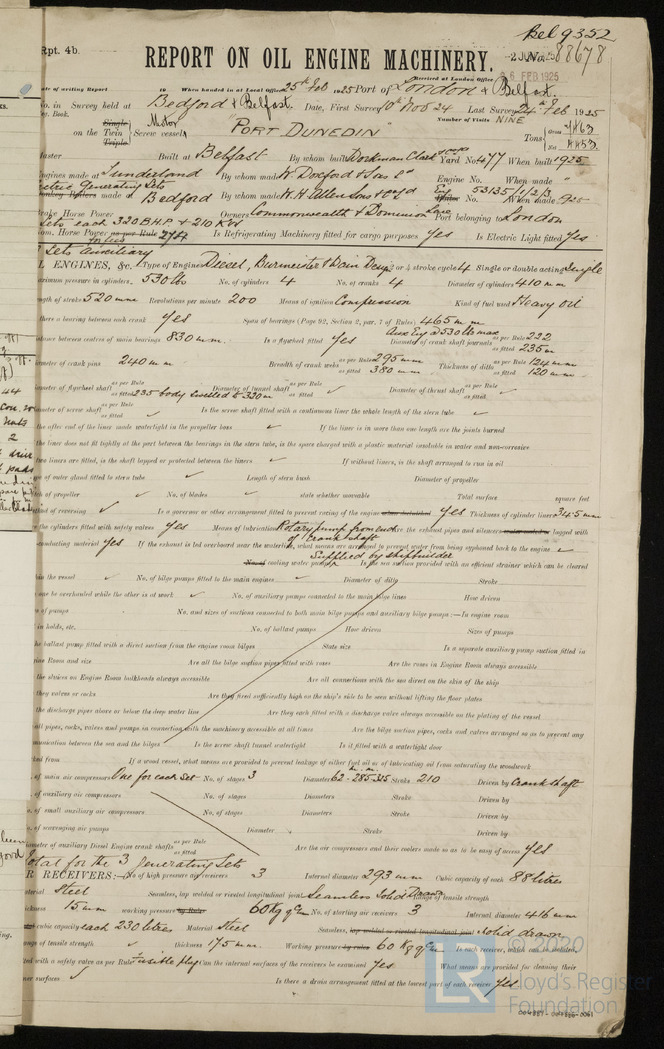 Bel 9352
Rpt. 4b.
REPORT ON OIL ENGINE MACHINERY.
No. 88678
Received at London Office
26 FEB 1925
Date of writing Report 19 When handed in at Local Office 25th Feb 1925 Port of London & Belfast.
No. in Survey held at Bedford & Belfast. Date, First Survey 10th Nov 24 Last Survey 24th Feb 1925
Reg. Book. Number of Visits NINE
on the Single Twin Triple Screw vessel Motor "PORT DUNEDIN" Tons Gross 7463 Net 4453
Master Built at Belfast By whom built Workman Clark Yard No. 477 When built 1925
Engines made at Sunderland By whom made W. Doxford & Sons Ld Engine No. When made
Electric Generating Sets made at Bedford By whom made W. H. Allen Sons & Coy Ld Eng No. 53135/1/2/3 When made 1925
Brake Horse Power Sets each 320 B.H.P & 210 KW Owners Commonwealth & Dominion Line Port belonging to London
Nom. Horse Power as per Rule Is Refrigerating Machinery fitted for cargo purposes Yes Is Electric Light fitted Yes
3 Sets Auxiliary
OIL ENGINES, &c. Type of Engines Diesel, Burmeister & Wain Design 2 or 4 stroke cycle 4 Single or double acting Single
Maximum pressure in cylinders 530 lbs No. of cylinders 4 No. of cranks 4 Diameter of cylinders 410 mm
Length of stroke 520 mm Revolutions per minute 200 Means of ignition Compression Kind of fuel used Heavy oil
Is there a bearing between each crank Yes Span of bearings (Page 92, Section 2, par. 7 of Rules) 465 mm
Aux Eng @ 530 lb max
Distance between centres of main bearings 830 mm Is a flywheel fitted Yes Diameter of crank shaft journals as per Rule 222 as fitted 235 m
Diameter of crank pins 240 mm Breadth of crank webs as per Rule 295 mm as fitted 380 mm Thickness of ditto as per Rule 124 mm as fitted 120 mm
Diameter of flywheel shaft as per Rule as fitted 235 body swelled to 330 m Diameter of tunnel shaft as per Rule as fitted ✓ Diameter of thrust shaft as per Rule as fitted ✓
Diameter of screw shaft as per Rule as fitted ✓ Is the screw shaft fitted with a continuous liner the whole length of the stern tube ✓
the after end of the liner made watertight in the propeller boss ✓ If the liner is in more than one length are the joints burned
the liner does not fit tightly at the part between the bearings in the stern tube, is the space charged with a plastic material insoluble in water and non-corrosive
two liners are fitted, is the shaft lapped or protected between the liners ✓ If without liners, is the shaft arranged to run in oil
of outer gland fitted to stern tube ✓ Length of stern bush Diameter of propeller
Pitch of propeller ✓ No. of blades ✓ state whether moveable Total surface square feet
Method of reversing ✓ Is a governor or other arrangement fitted to prevent racing of the engine Yes Thickness of cylinder liners 34.5 mm
Are the cylinders fitted with safety valves Yes Means of lubrication Rotary pump from end of crank shaft Are the exhaust pipes and silencers lagged with
non-conducting material Yes If the exhaust is led overboard near the waterline, what means are arranged to prevent water from being syphoned back to the engine ✓
Supplied by shipbuilder
cooling water pumps Is the sea suction provided with an efficient strainer which can be cleared
within the vessel ✓ No. of bilge pumps fitted to the main engines ✓ Diameter of ditto Stroke
one be overhauled while the other is at work ✓ No. of auxiliary pumps connected to the main bilge lines How driven
of pumps No. and sizes of suctions connected to both main bilge pumps and auxiliary bilge pumps:—In engine room
in holds, etc. No. of ballast pumps How driven Sizes of pumps
the ballast pump fitted with a direct suction from the engine room bilges State size Is a separate auxiliary pump suction fitted in
Engine Room and size Are all the bilge suction pipes fitted with roses Are the roses in Engine Room always accessible
the sluices on Engine Room bulkheads always accessible Are all connections with the sea direct on the skin of the ship
they valves or cocks Are they fixed sufficiently high on the ship's side to be seen without lifting the floor plates
the discharge pipes above or below the deep water line Are they each fitted with a discharge valve always accessible on the plating of the vessel
all pipes, cocks, valves and pumps in connection with the machinery accessible at all times Are the bilge suction pipes, cocks and valves arranged so as to prevent any
communication between the sea and the bilges Is the screw shaft tunnel watertight Is it fitted with a watertight door
worked from If a wood vessel, what means are provided to prevent leakage of either fuel oil or lubricating oil from saturating the woodwork
No. of main air compressors One for each Set No. of stages 3 Diameters 62 - 285 - 325 m.m. Stroke 210 Driven by Crank shaft
No. of auxiliary air compressors No. of stages Diameters Stroke Driven by
No. of small auxiliary air compressors No. of stages Diameters Stroke Driven by
No. of scavenging air pumps Diameter Stroke Driven by
Diameter of auxiliary Diesel Engine crank shafts as per Rule as fitted Are the air compressors and their coolers made so as to be easy of access Yes
Total for the 3 Generating Sets
AIR RECEIVERS:— No. of high pressure air receivers 3 Internal diameter 293 mm Cubic capacity of each 88 litres
Material Steel Seamless, lap welded or riveted longitudinal joint Seamless Solid Drawn Range of tensile strength
thickness 15 mm working pressure by Rule 60 Kg q Cm No. of starting air receivers 3 Internal diameter 416 mm
Total cubic capacity each 230 litres Material Steel Seamless, lap welded or riveted longitudinal joint Solid drawn
Range of tensile strength ✓ thickness 17.5 mm Working pressure by rules 60 Kg q Cm Is each receiver, which can be isolated,
fitted with a safety valve as per Rule Fusible plug Can the internal surfaces of the receivers be examined Yes What means are provided for cleaning their
inner surfaces ✓ Is there a drain arrangement fitted at the lowest part of each receiver Yes
© 2020
LR
Lloyd's Register
Foundation
004387-004388-0061